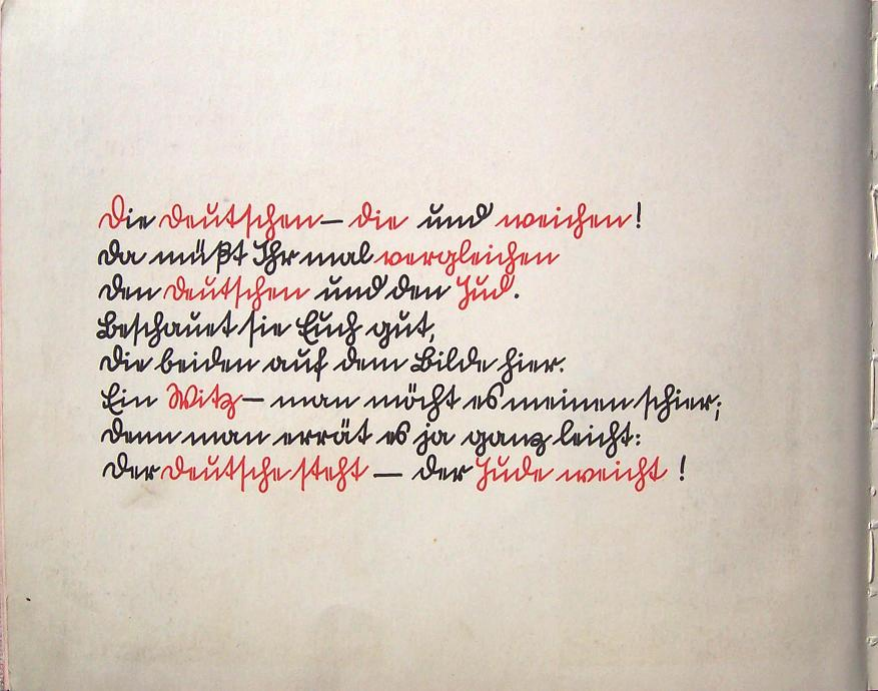 Die Deutschen – die und weichen!
Da müßt Ihr mal vergleichen
Den Deutschen und den Jud.
Beschauet sie Euch gut,
Die beiden auf dem Bilde hier.
Ein Witz – man möcht es meinen schier;
Denn man errät es ja ganz leicht:
Der Deutsche steht – der Jude weicht!